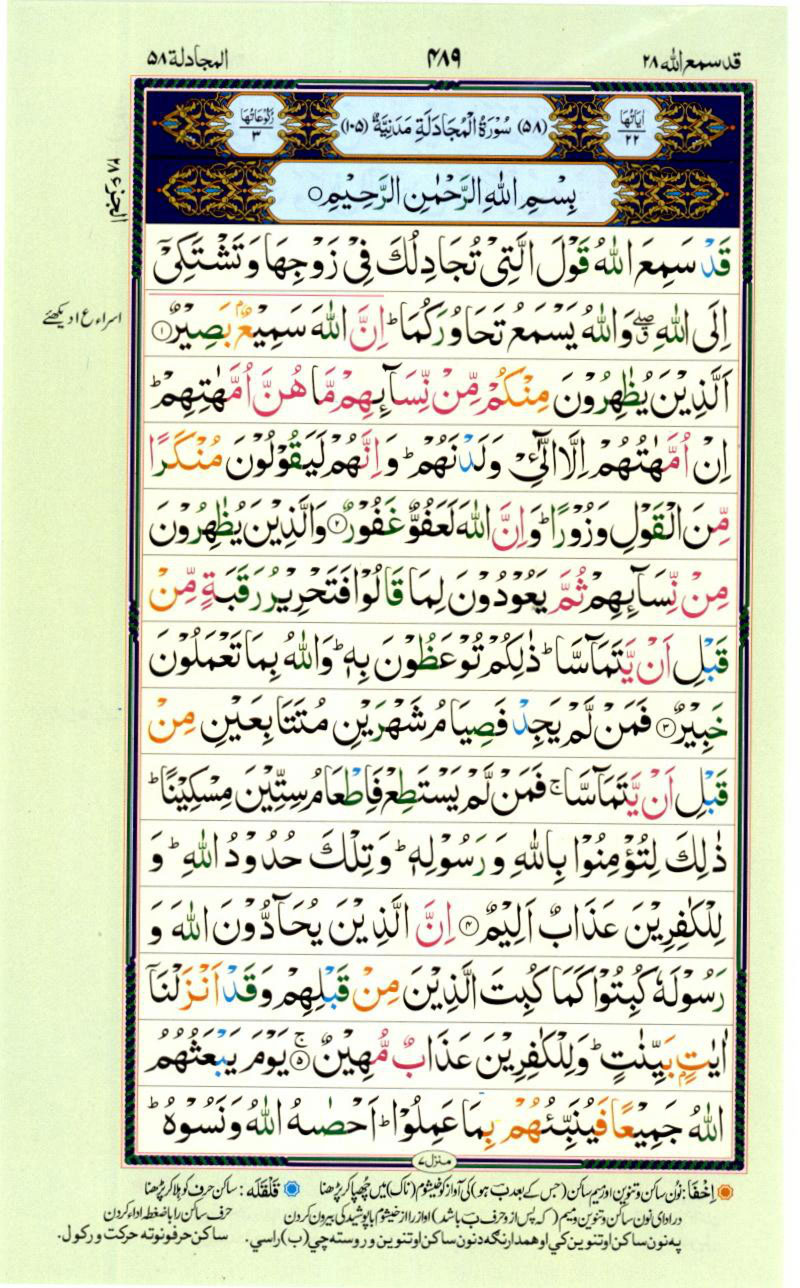 قد سمع الله ٢٨
٤٨٩
المجادلة ٥٨
اٰيَاتُهَا ٢٢
(٥٨) سُوْرَةُ الْمُجَادَلَةِ مَدَنِيَّةٌ (١٠٥)
رُكُوْعَاتُهَا ٣
بِسْمِ اللّٰهِ الرَّحْمٰنِ الرَّحِيْمِ○
الجزء ٢٨
قَدْ سَمِعَ اللّٰهُ قَوْلَ الَّتِىْ تُجَادِلُكَ فِىْ زَوْجِهَا وَ تَشْتَكِىْۤ
اِلَى اللّٰهِ ۖۗ وَاللّٰهُ يَسْمَعُ تَحَاوُرَكُمَا ؕ اِنَّ اللّٰهَ سَمِيْعٌۢ بَصِيْرٌ ۝١
اسراء ع ١ دیکھئے
اَلَّذِيْنَ يُظٰهِرُوْنَ مِنْكُمْ مِّنْ نِّسَآئِهِمْ مَّا هُنَّ اُمَّهٰتِهِمْ ؕ
اِنْ اُمَّهٰتُهُمْ اِلَّا الّٰٓـِٔىْ وَلَدْنَهُمْ ؕ وَ اِنَّهُمْ لَيَقُوْلُوْنَ مُنْكَرًا
مِّنَ الْقَوْلِ وَ زُوْرًا ؕ وَ اِنَّ اللّٰهَ لَعَفُوٌّ غَفُوْرٌ ۝٢ وَالَّذِيْنَ يُظٰهِرُوْنَ
مِنْ نِّسَآئِهِمْ ثُمَّ يَعُوْدُوْنَ لِمَا قَالُوْا فَتَحْرِيْرُ رَقَبَةٍ مِّنْ
قَبْلِ اَنْ يَّتَمَآسَّا ؕ ذٰلِكُمْ تُوْعَظُوْنَ بِهٖ ؕ وَاللّٰهُ بِمَا تَعْمَلُوْنَ
خَبِيْرٌ ۝٣ فَمَنْ لَّمْ يَجِدْ فَصِيَامُ شَهْرَيْنِ مُتَتَابِعَيْنِ مِنْ
قَبْلِ اَنْ يَّتَمَآسَّا ۚ فَمَنْ لَّمْ يَسْتَطِعْ فَاِطْعَامُ سِتِّيْنَ مِسْكِيْنًا ؕ
ذٰلِكَ لِتُؤْمِنُوْا بِاللّٰهِ وَ رَسُوْلِهٖ ؕ وَ تِلْكَ حُدُوْدُ اللّٰهِ ؕ وَ
لِلْكٰفِرِيْنَ عَذَابٌ اَلِيْمٌ ۝٤ اِنَّ الَّذِيْنَ يُحَآدُّوْنَ اللّٰهَ وَ
رَسُوْلَهٗ كُبِتُوْا كَمَا كُبِتَ الَّذِيْنَ مِنْ قَبْلِهِمْ وَ قَدْ اَنْزَلْنَاۤ
اٰيٰتٍۭ بَيِّنٰتٍ ؕ وَ لِلْكٰفِرِيْنَ عَذَابٌ مُّهِيْنٌ ۝٥ۚ يَوْمَ يَبْعَثُهُمُ
اللّٰهُ جَمِيْعًا فَيُنَبِّئُهُمْ بِمَا عَمِلُوْا ؕ اَحْصٰىهُ اللّٰهُ وَ نَسُوْهُ ؕ
منزل ٧
اِخْفَا: نون ساکن و تنوین اور میم ساکن (جس کے بعد ب ہو) کی آواز کو خیشوم (ناک) میں چھپا کر پڑھنا قَلْقَلَه: ساکن حرف کو ہلا کر پڑھنا
در ادای نون ساکن و تنوین و میم (که پس از و حرف ب باشد) آواز را از خیشوم با پوشیدگی بیرون کردن حرف ساکن را با ضغطه اداء کردن
په نون ساکن او تنوین کي او همدارنگه د نون ساکن او تنوین و روسته چي (ب) راسي. ساکن حرفونو ته حرکت ورکول.